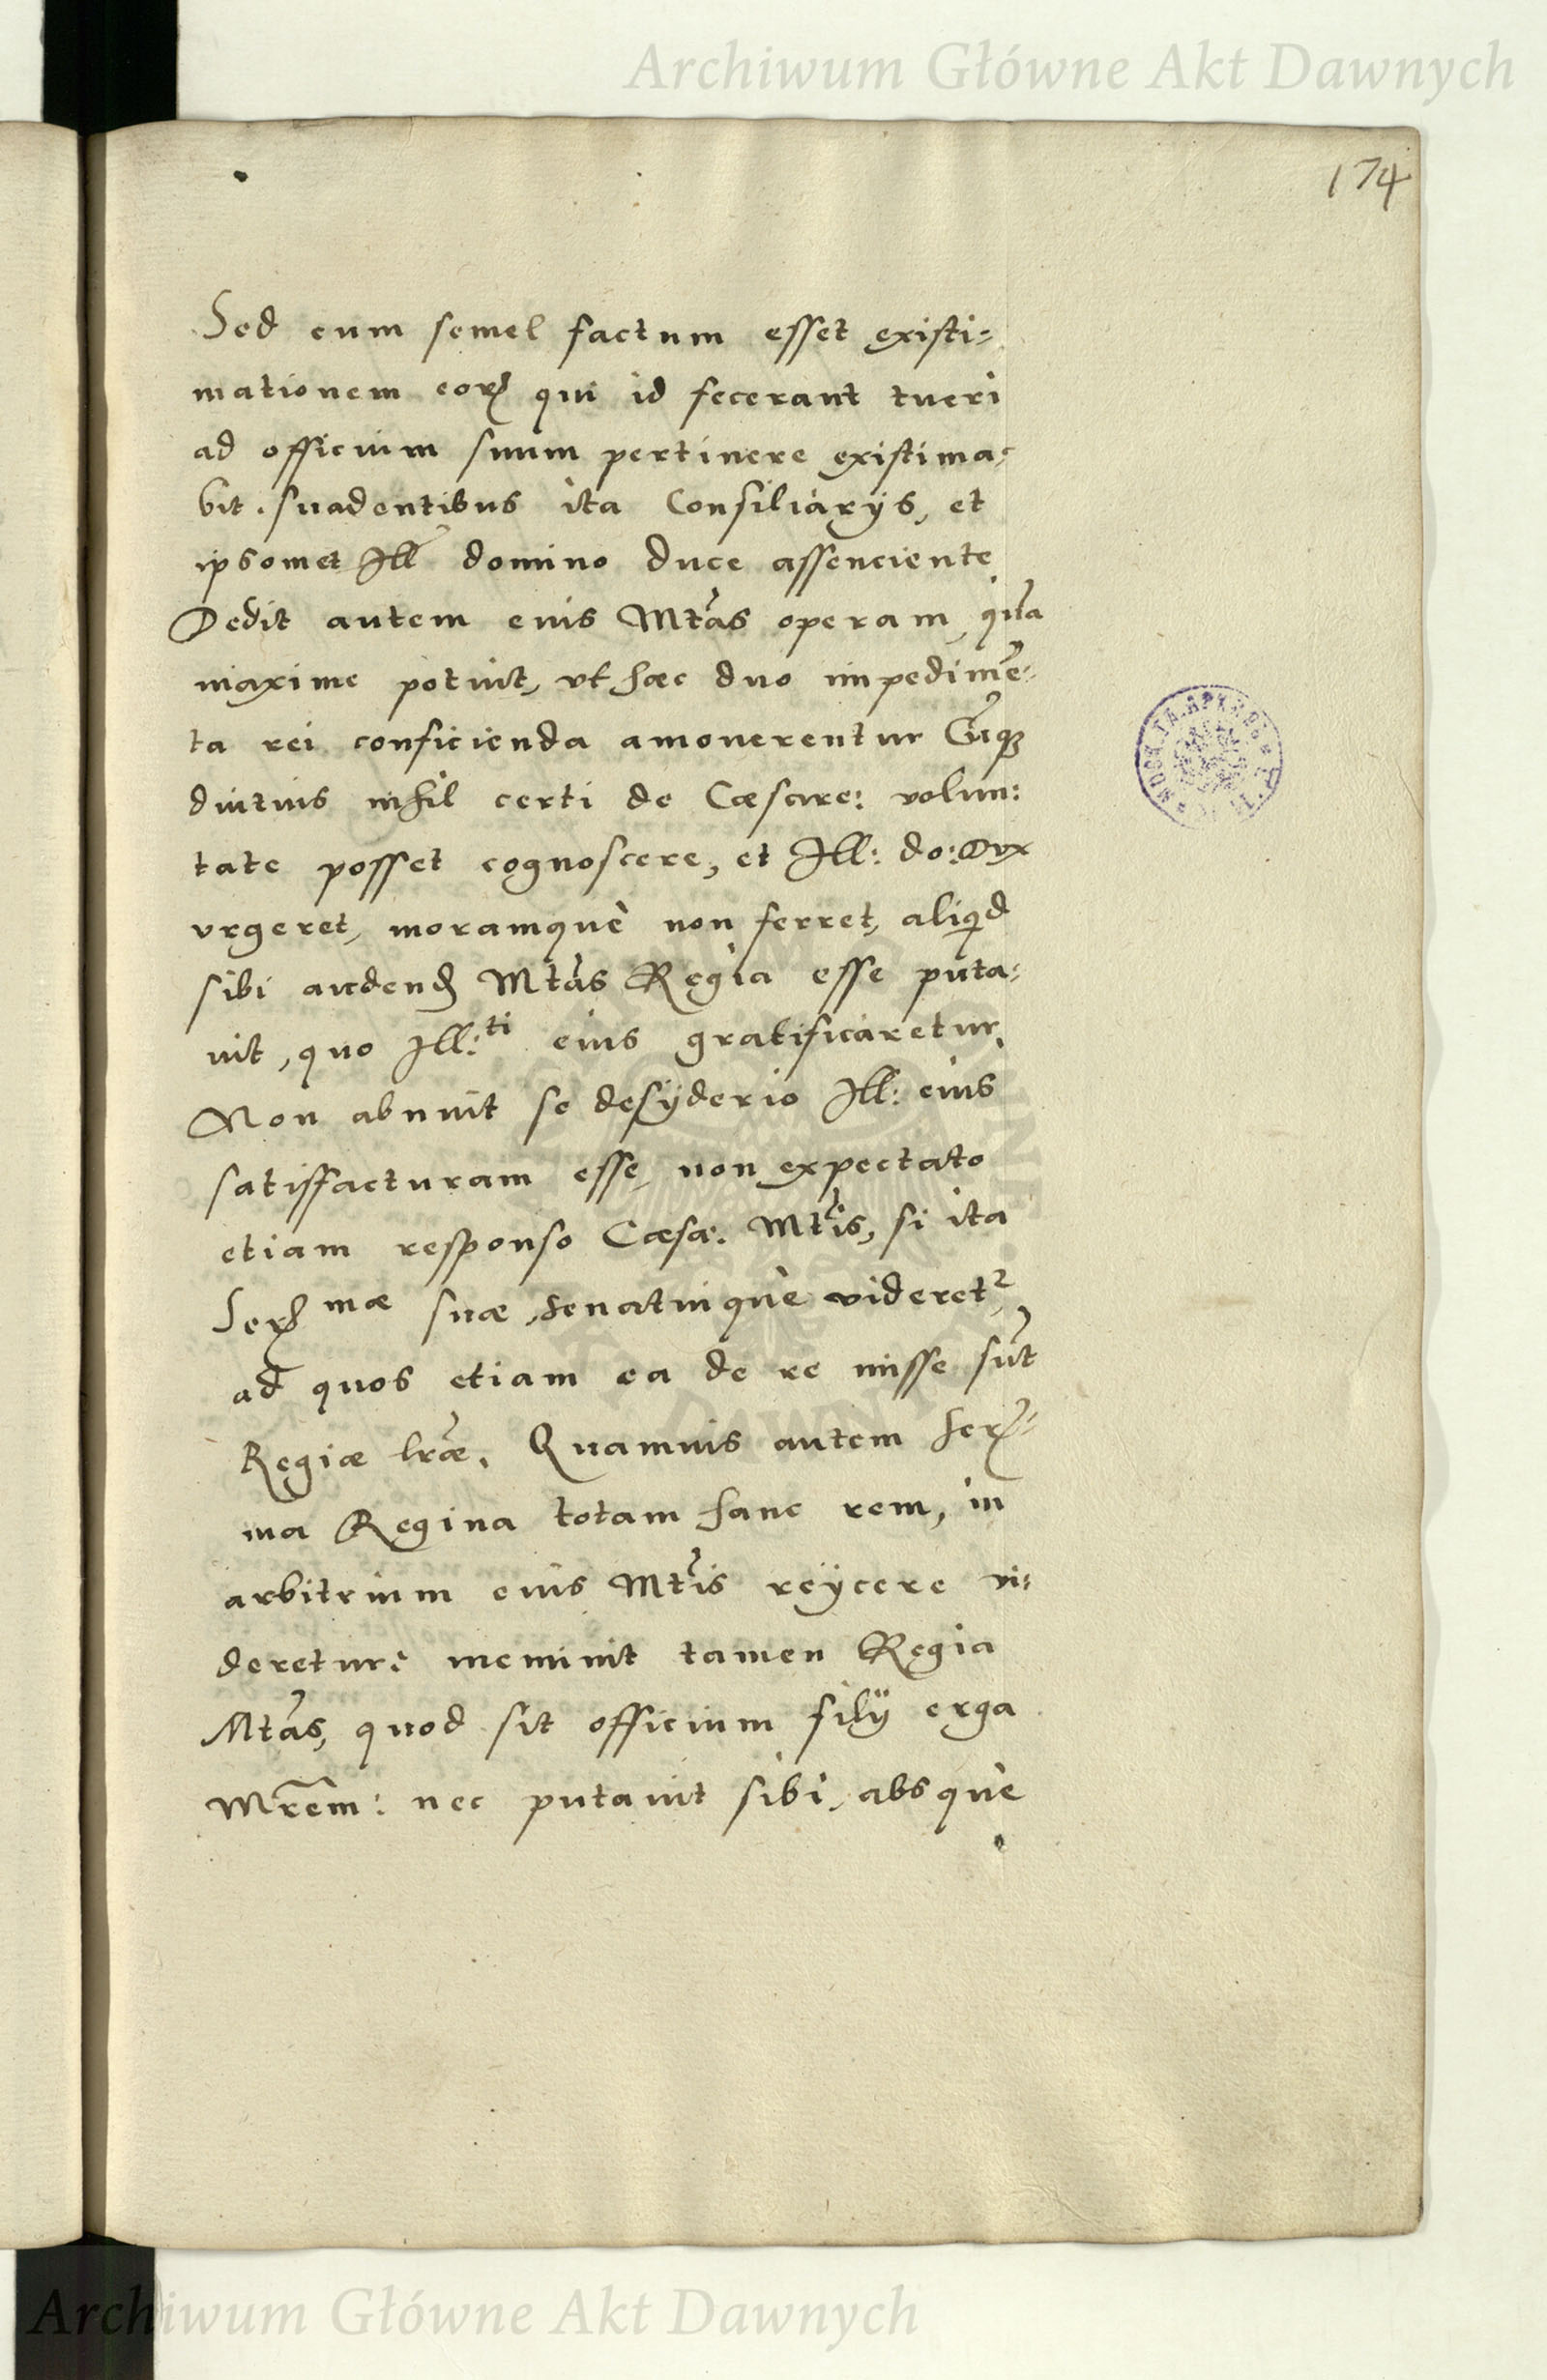 Archiwum Główne Akt Dawnych
174
Sed cum semel factum esset existi=
mationem eorꝝ qui id fecerant tueri
ad officium suum pertinere existima=
bit. suadentibus ita Consiliarijs, et
ipsomet Ill domino duce assenciente
Dedit autem eius Mtas operam, qua
maxime potuit, vt haec duo impedimē=
ta rei conficienda amouerentur Cūqꝫ
diutius nihil certi de Cæsare: volun:
tate posset cognoscere, et Ill: do: Dvx
vrgeret, moramquè non ferret, aliqid
sibi audend Mtas Regia esse puta=
uit, quo Ill:ti eius gratificaretur,
Non abnuit se desÿderio Ill: eius
satisfacturam esse, non expectato
etiam responso Cæsa: Mtis, si ita
Serꝝ mæ suæ, senatuiquè videretr
ad quos etiam ea de re misse sūt
Regiæ lræ. Quamuis autem serꝝ=
ma Regina totam hanc rem, in
arbitrium eius Mtis reÿcere vi=
deretur: meminit tamen Regia
Mtas, quod sit officium filÿ erga
Mrem: nec putauit sibi, absquè
Archiwum Główne Akt Dawnych